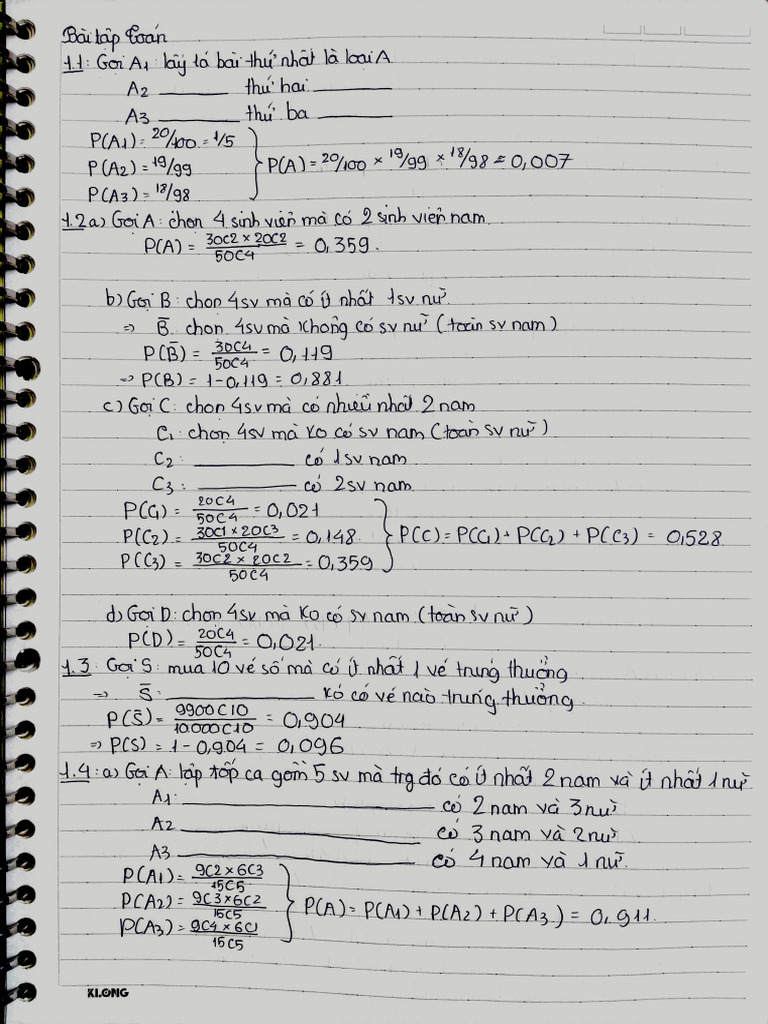 Bài tập Toán
1.1: Gọi A1: lấy lá bài thứ nhất là loại A
A2 ______ thứ hai ______
A3 ______ thứ ba ______
P(A1) = 20/100 = 1/5
P(A2) = 19/99
P(A3) = 18/98
P(A) = 20/100 × 19/99 × 18/98 = 0,007
1.2 a) Gọi A: chọn 4 sinh viên mà có 2 sinh viên nam.
P(A) = 30C2 × 20C2 / 50C4 = 0,359.
b) Gọi B: chọn 4sv mà có ít nhất 1sv nữ.
=> B̄: chọn 4sv mà không có sv nữ (toàn sv nam)
P(B̄) = 30C4 / 50C4 = 0,119
=> P(B) = 1-0,119 = 0,881.
c) Gọi C: chọn 4sv mà có nhiều nhất 2 nam
C1: chọn 4sv mà ko có sv nam (toàn sv nữ)
C2: ______ có 1sv nam
C3: ______ có 2sv nam.
P(C1) = 20C4 / 50C4 = 0,021
P(C2) = 30C1 × 20C3 / 50C4 = 0,148.
P(C3) = 30C2 × 20C2 / 50C4 = 0,359
P(C) = P(C1) + P(C2) + P(C3) = 0,528.
d) Gọi D: chọn 4sv mà ko có sv nam (toàn sv nữ)
P(D) = 20C4 / 50C4 = 0,021.
1.3: Gọi S: mua 10 vé số mà có ít nhất 1 vé trúng thưởng
=> S̄: ______ kó có vé nào trúng thưởng.
P(S̄) = 9900C10 / 10000C10 = 0,904
=> P(S) = 1 - 0,904 = 0,096
1.4: a) Gọi A: lập tốp ca gồm 5 sv mà trg đó có ít nhất 2 nam và ít nhất 1 nữ.
A1: ______ có 2 nam và 3 nữ
A2 ______ có 3 nam và 2 nữ
A3 ______ có 4 nam và 1 nữ.
P(A1) = 9C2 × 6C3 / 15C5
P(A2) = 9C3 × 6C2 / 15C5
P(A3) = 9C4 × 6C1 / 15C5
P(A) = P(A1) + P(A2) + P(A3) = 0,911.
KLONG